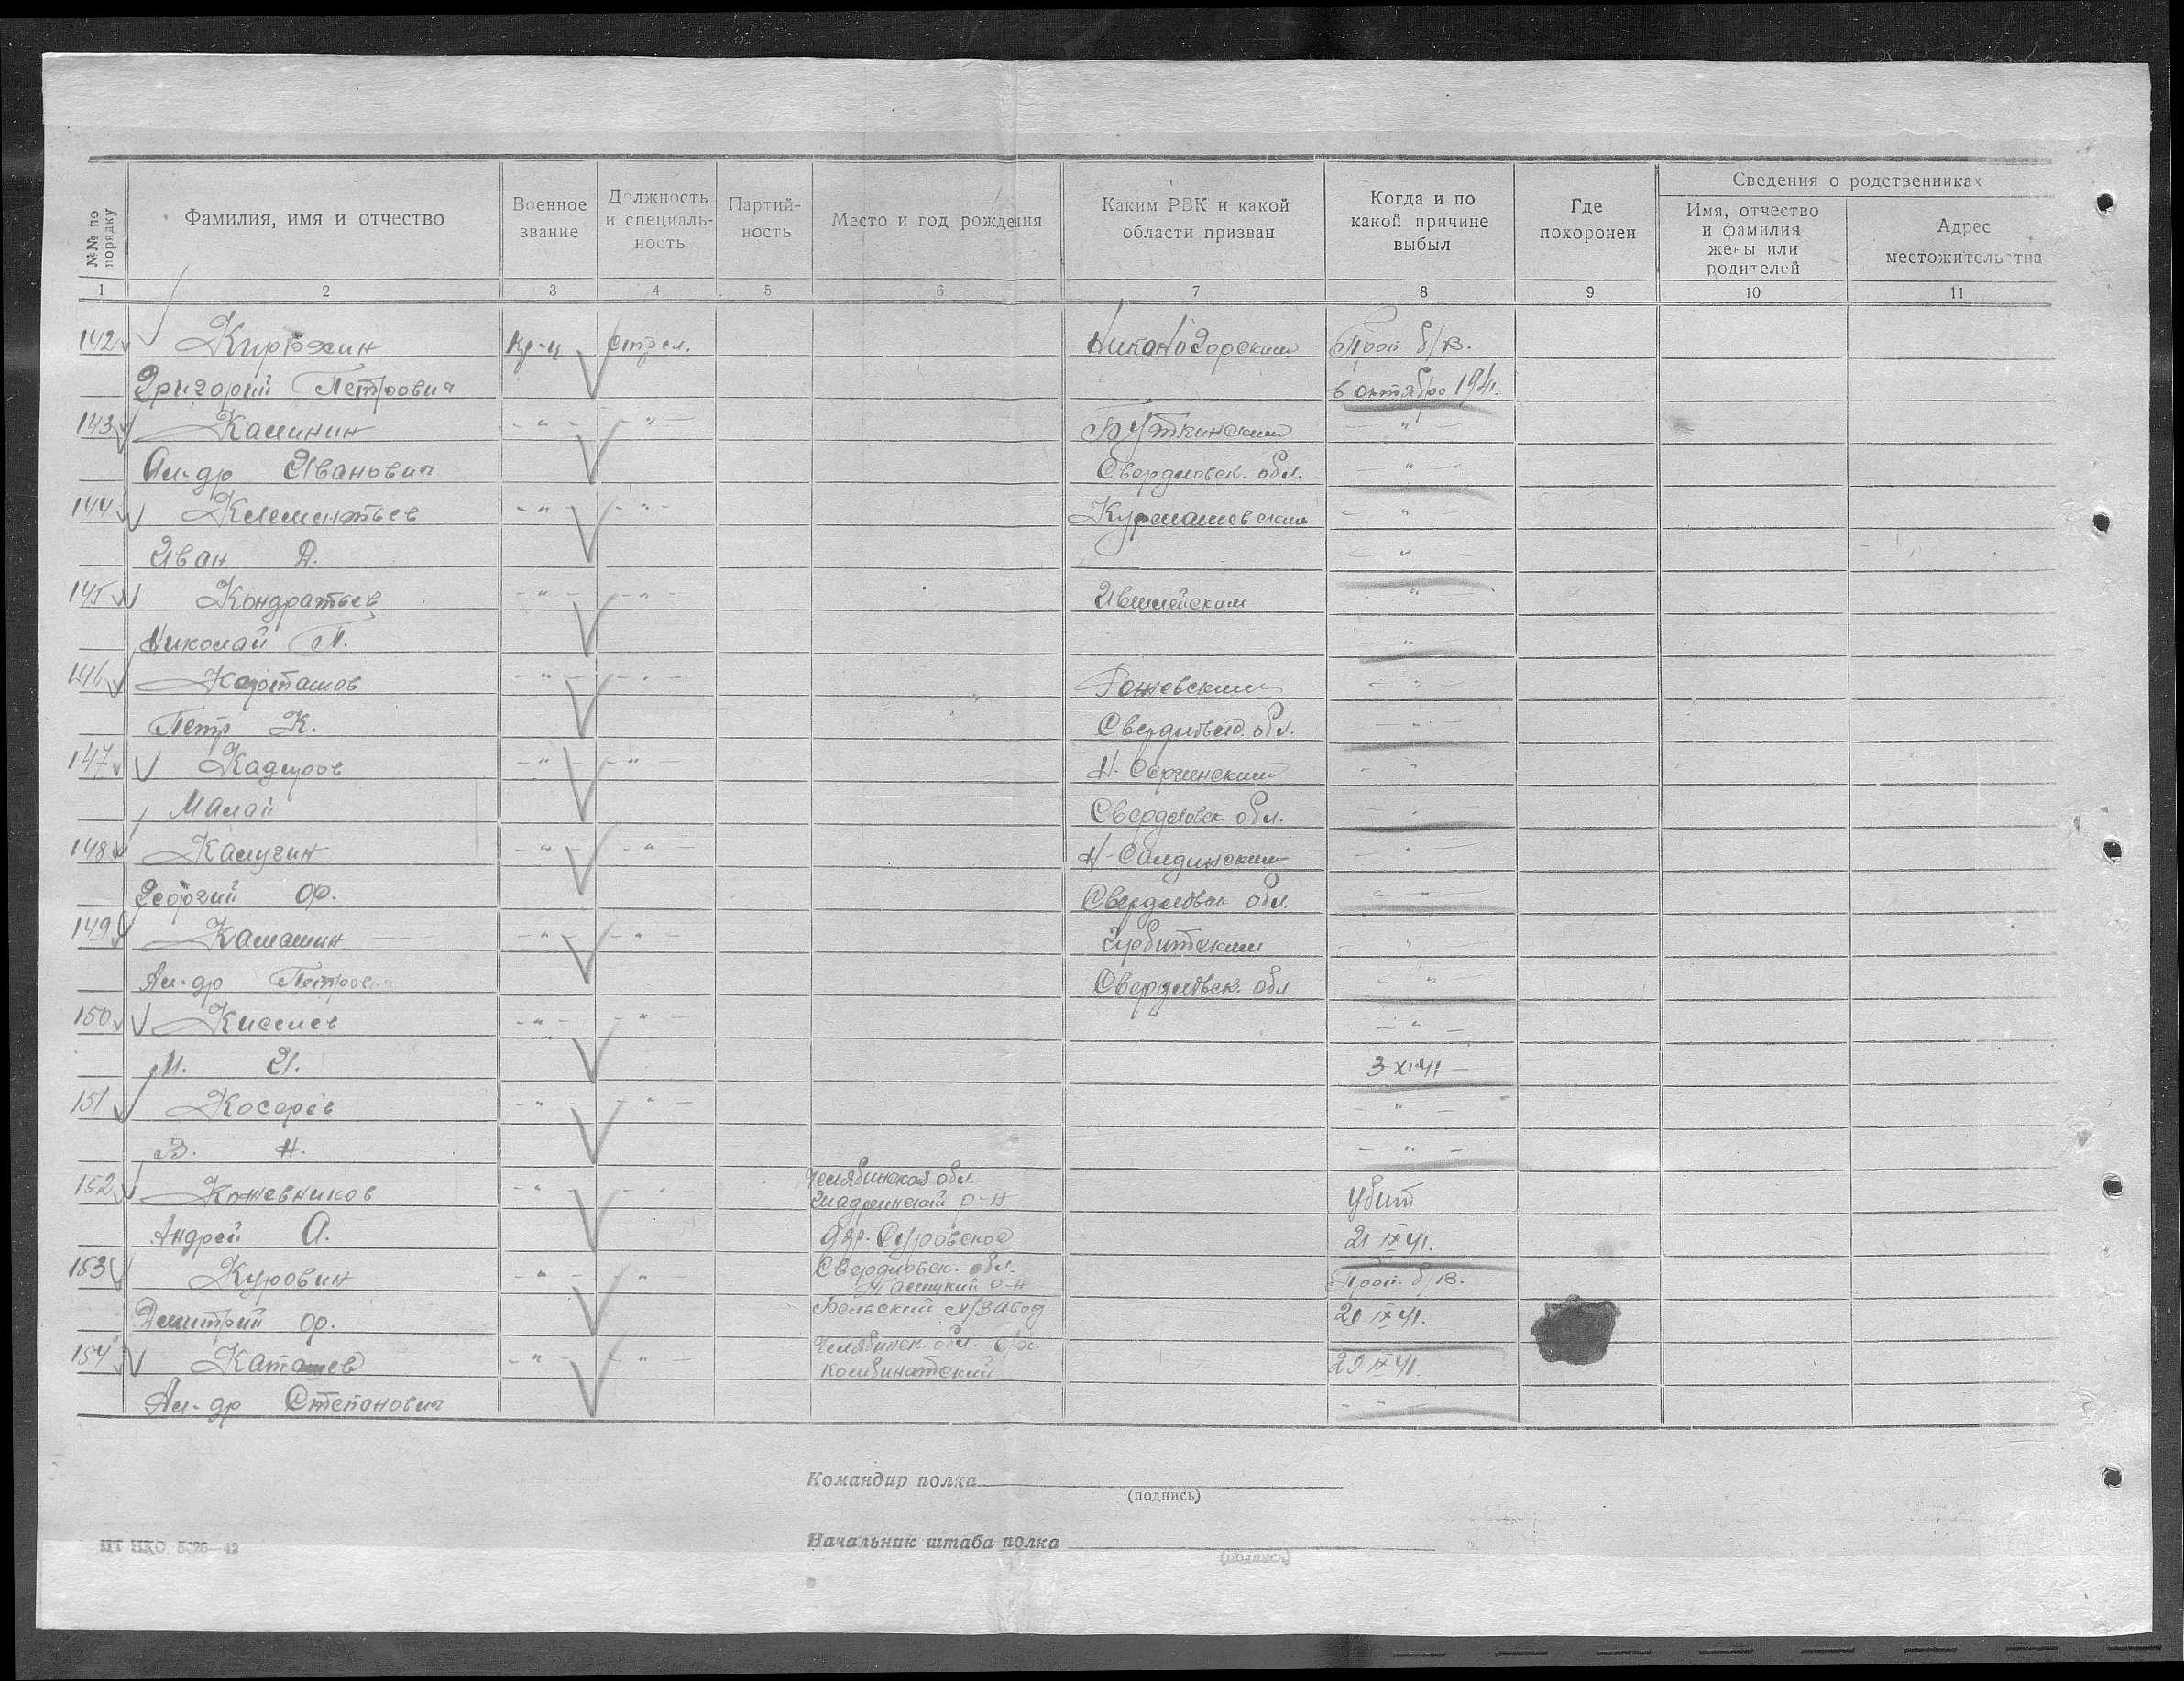 №№ по порядку
Фамилия, имя и отчество
Военное звание
Должность и специаль-ность
Партий-ность
Место и год рождения
Каким РВК и какой области призван
Когда и по какой причине выбыл
Где похоронен
Сведения о родственниках
Имя, отчество и фамилия жены или родителей
Адрес местожительства
1 2 3 4 5 6 7 8 9 10 11
142 Кр-ц Стрел. Проп б/в.
Григорий Петрович 6 октября 1941.
143 Калинин - " - - " Буткинским - " -
Ал-др Иванович Свердловск. обл. - " -
144 Клементьев - " - - " - - " -
Иван Д. - " -
145 Кондратьев - " - - " - - " -
Николай П. - " -
146 Карташов - " - - " - - " -
Петр К. Свердловск. обл. - " -
147 Кадыров - " - - " - Н-Сергинским - " -
Малай Свердловск. обл. - " -
148 Калугин - " - - " - Н-Салдинским - " -
Георгий Ф. Свердловск обл. - " -
149 Калашин - " - - " - Ирбитским - " -
Ал-др Петрович Свердловск. обл - " -
150 Киселев - " - - " - - " -
М. И. 3 XI 41 -
151 Косарев - " - - " - - " -
В. Н. - " -
152 Кожевников - " - - " - Челябинская обл. р-н Убит
Андрей А. дер. Суровское 21 IX 41.
153 Куровин - " - - " - Свердловск. обл. Талицкий р-н Проп. б/в.
Дмитрий Ф. 20 IX 41.
154 Каташев - " - - " - Челябинск. обл. 29 IX 41.
Ал-др Степанович - " -
Командир полка
(подпись)
Начальник штаба полка
(подпись)